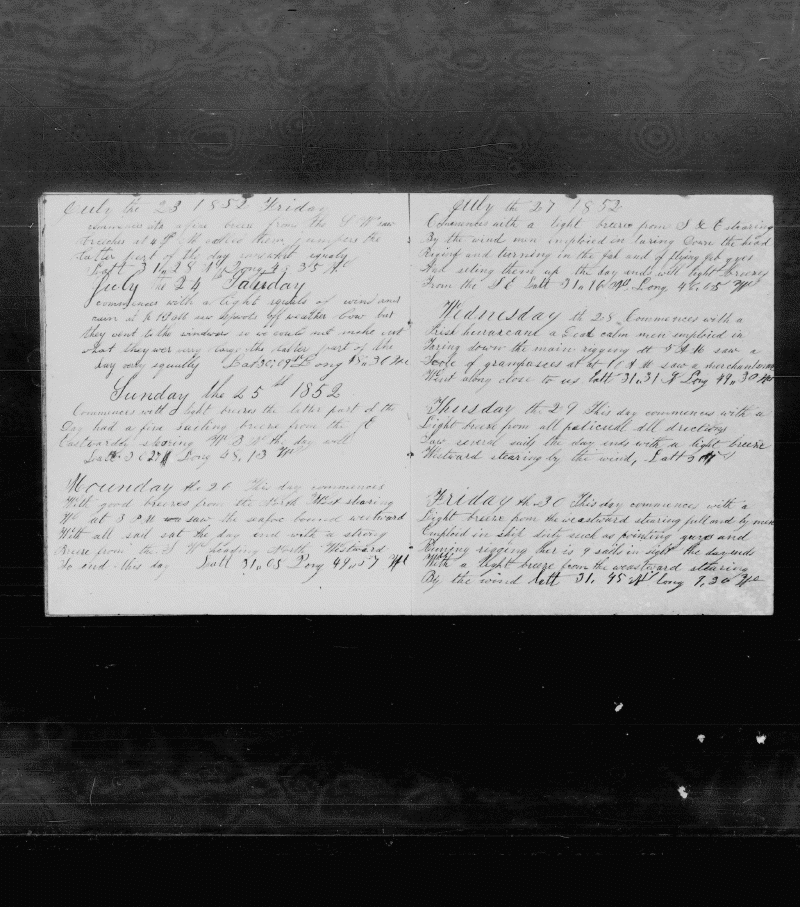 July the 23 1852 Friday
Commences ats a fine breze from the S W saw
breeches at 4 P M called them jumpers the
latter part of the day somewhat squaly
Latt 31,,28 N Long 49,,35 W
July the 24th Saturday
commences with a light squals of wind and
calm at saw blows off weather bow but
they went to the windward so we could not make out
what they wer very large the latter part of the
day very squally Lat 30,,19 Long 48,,30 We
Sunday the 25th 1852
Commences with light brezes the latter part of the
Day had a fine breeze from the
Eastwardn stearing W B W th day
Latt 30 27 N Long 48,,13 W
Mounday the 26 This day commences
With good breezes from the North West staring
W at 3 P.M saw the bound westward
With all sail out the day end with a strong
Breze from the S W heading North Westward
So end this day Latt 31,,03 Long 49,,57 We
July the 27 1852
Commences with a light breeze from S & E stearing
By the wind men imploied in taring Doune the head
Rigeng and turning in the fut and of flying jib guys
And seting them up the day ends with light breezes
From the S E Latt 31,,16 N Long 48,,05 We
Wednesday th 28 Commences with a
Brisk and a Ded calm men imploied in
Taring down the main rigging at 5 A M saw a
Scole of grampases at at 11 A M saw a merchantman
Went along close to us Latt 31,,31 N Long 49,,30 We
Thusday the 29 This day commences with a
Light breeze from all all directions
Saw several sails the day ends with a light breeze
Westward stearing by the wind, Latt
Friday th 30 This day commences with a
Light breeze from the weastward stearing full and by men
Emploid in ship duty such as pointing yards and
Runing rigging ther is 9 sails in sight the day ends
With a light breeze from the weastward stearing
By the wind latt 31,,45 N long We